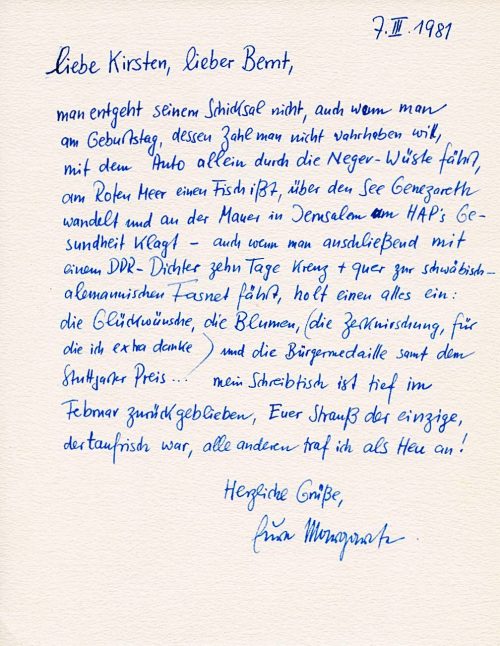 7.III.1981
Liebe Kirsten, lieber Bernt,
man entgeht seinem Schicksal nicht, auch wenn man
am Geburtstag, dessen Zahl man nicht wahrhaben will,
mit dem Auto allein durch die Neger-Wüste fährt,
am Roten Meer einen Fisch ißt, über den See Genezareth
wandelt und an der Mauer in Jerusalem um HAP's Ge-
sundheit klagt – auch wenn man anschließend mit
einem DDR-Dichter zehn Tage kreuz + quer zur schwäbisch-
alemannischen Fasnet fährt, holt einen alles ein:
die Glückwünsche, die Blumen, (die Zerknirschung, für
die ich extra danke) und die Bürgermedaille samt dem
Stuttgarter Preis... mein Schreibtisch ist tief im
Februar zurückgeblieben, Euer Strauß der einzige,
der taufrisch war, alle anderen traf ich als Heu an!
Herzliche Grüße,